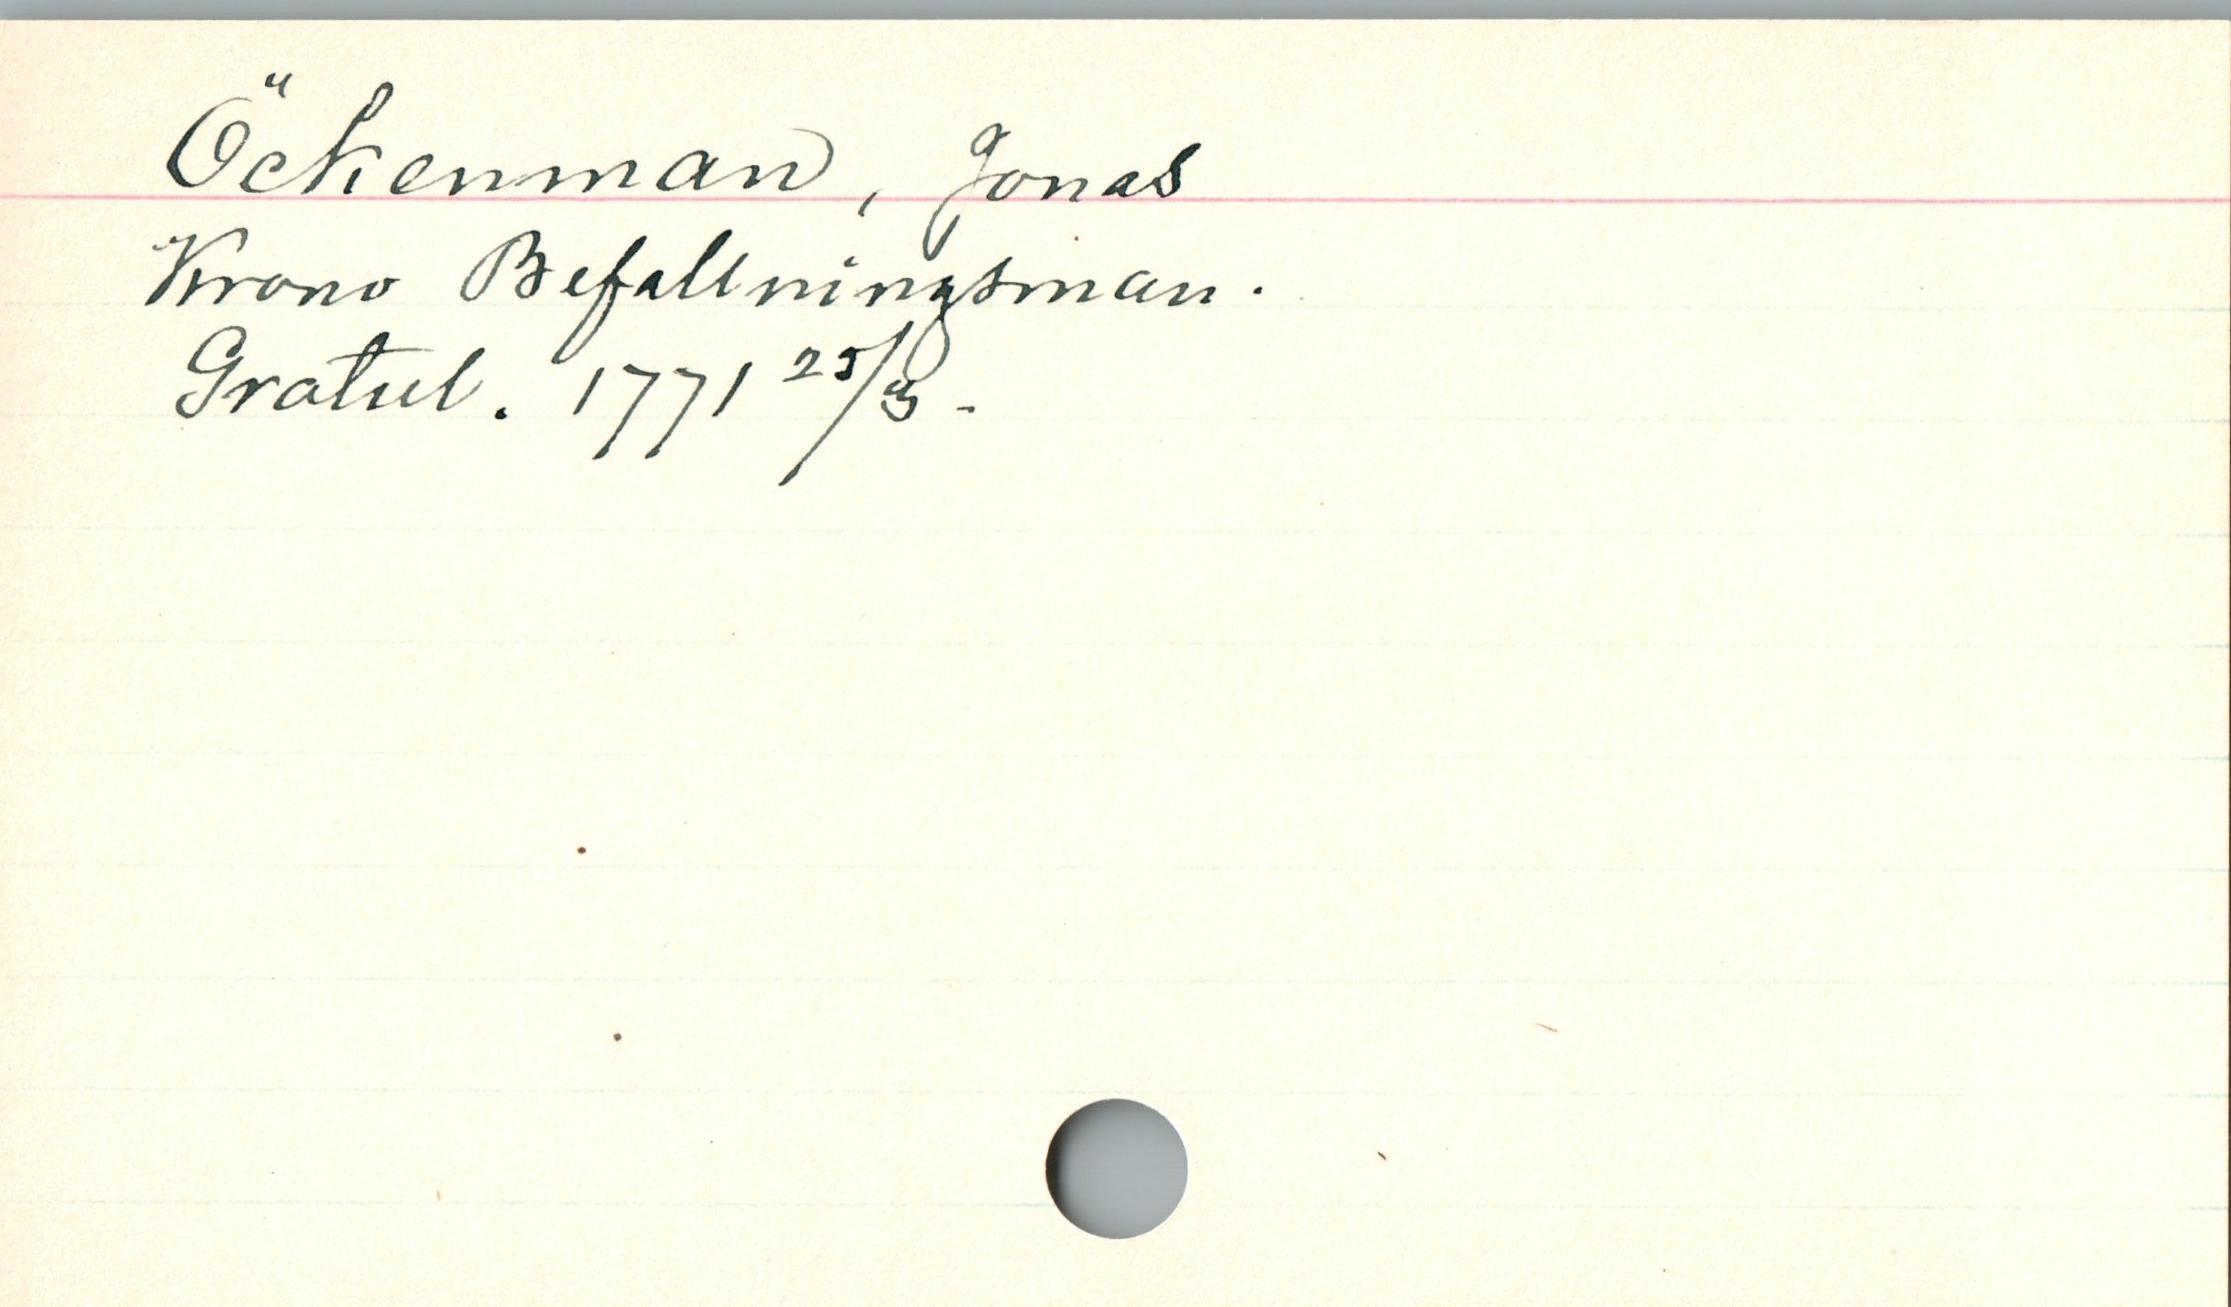 Öckenman, Jonas
Krono Befallningsman.
Gratul. 1771 25/3.